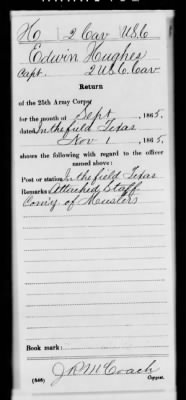 H | 2 Cav | U.S.C.
Edwin Hughes
Capt. 2 U.S.C. Cav
Return
of the 25th Army Corps
for the month of Sept, 1865.
dated In the field Texas
Nov 1, 1865.
shows the following with regard to the officer
named above:
Post or station In the field Texas
Remarks Attached Staff
Com'y of Musters
Book mark:
J R McCoach
(546) Copyist.